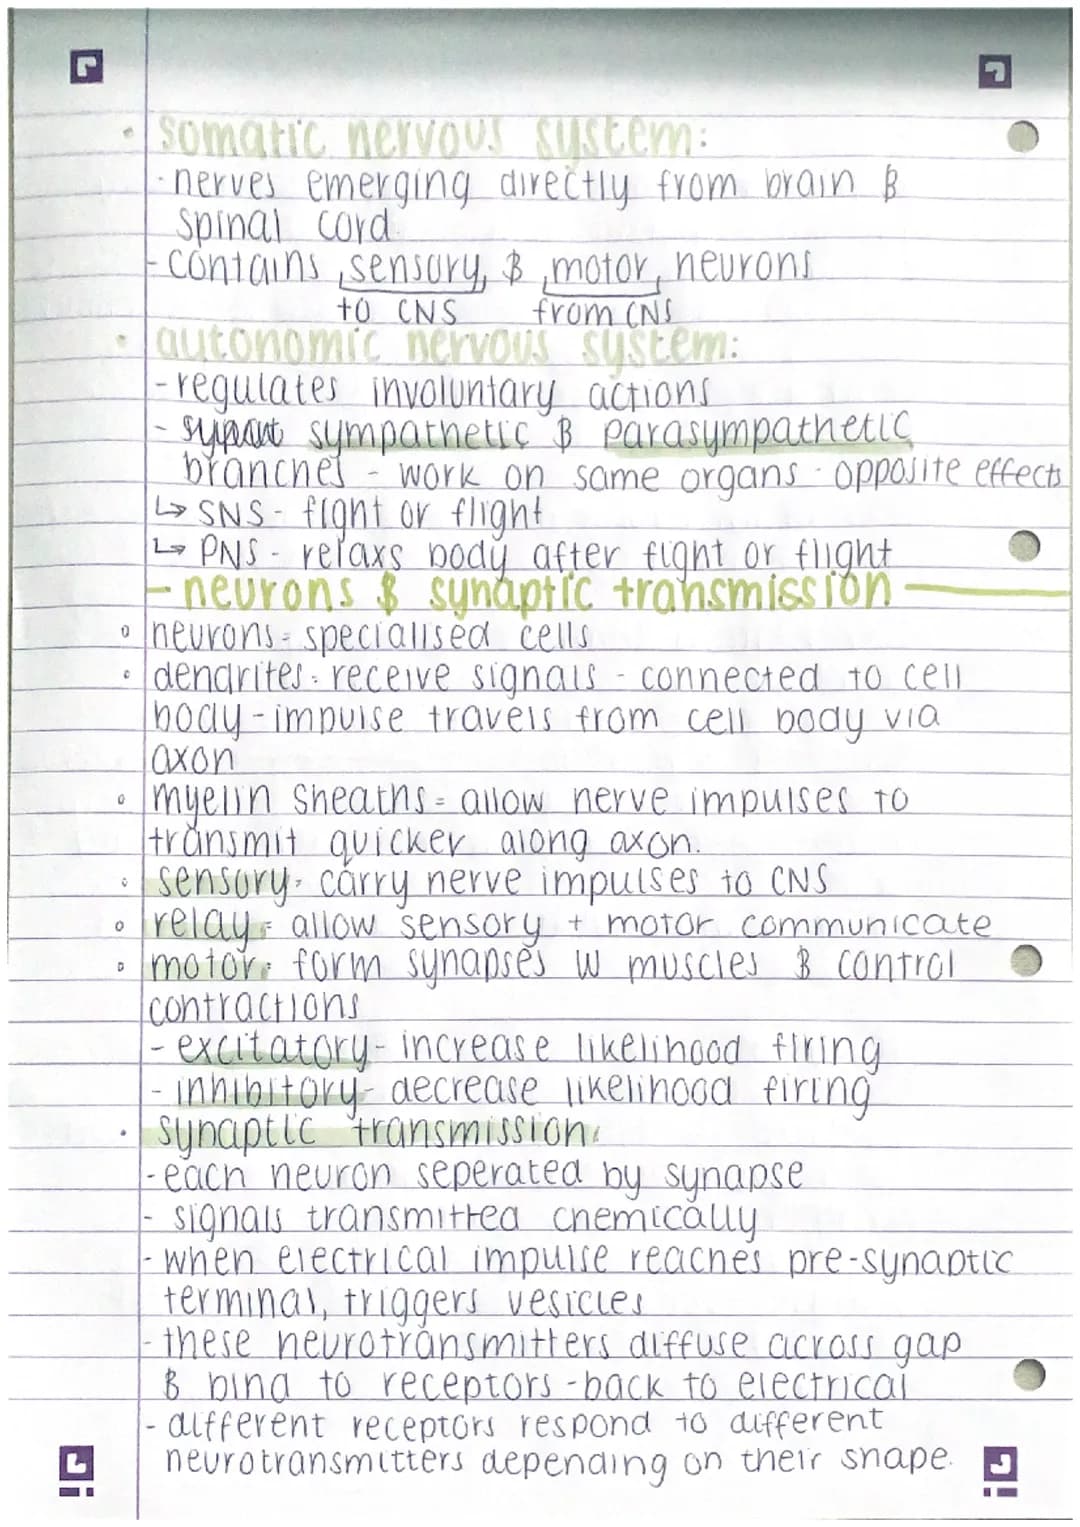 • somatic nervous system:
- nerves emerging directly from brain &
spinal cord.
- contains sensory & motor neurons
to CNS from CNS
• autonomic nervous system:
- regulates involuntary actions
- sympathetic & parasympathetic
branches - work on same organs - opposite effects
↳ SNS - fight or flight
↳ PNS - relaxs body after fight or flight
- neurons & synaptic transmission
• neurons = specialised cells
• dendrites: receive signals - connected to cell
body - impulse travels from cell body via
axon
• myelin sheaths = allow nerve impulses to
transmit quicker along axon.
• sensory = carry nerve impulses to CNS
• relay = allow sensory + motor communicate
• motor = form synapses w muscles & control
contractions
- excitatory - increase likelihood firing
- inhibitory - decrease likelihood firing
• synaptic transmission:
- each neuron seperated by synapse
- signals transmitted chemically
- when electrical impulse reaches pre-synaptic
terminal, triggers vesicles
- these neurotransmitters diffuse across gap
& bind to receptors - back to electrical
- different receptors respond to different
neurotransmitters depending on their shape.